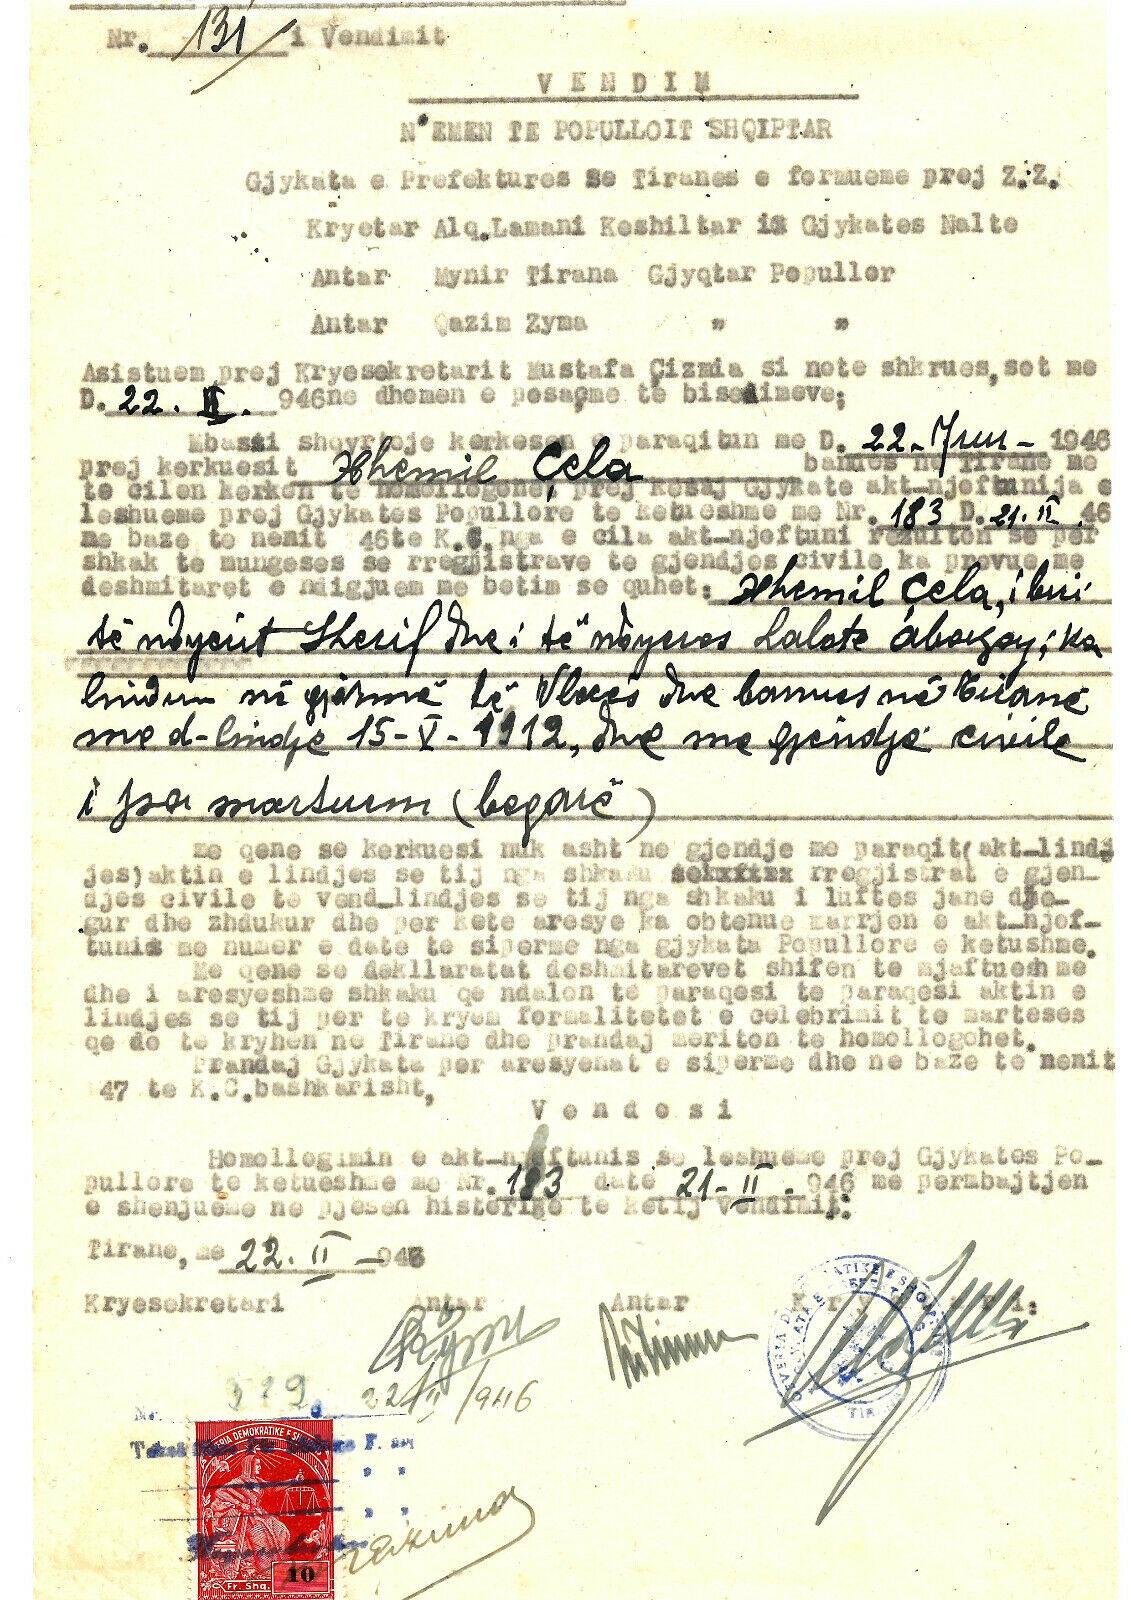 Nr. 131 i Vendimit
VENDIM
N'EMEN TE POPULLOIT SHQIPTAR
Gjykata e Prefektures se Tiranes e formueme prej Z.Z.
Kryetar Alq.Lamani Keshiltar i Gjykates Nalte
Antar Mynir Tirana Gjyqtar Popullor
Antar Qazim Zyma " "
Asistuem prej Kryesekretarit Mustafa Çizmia si note shkrues, sot me
D. 22. II. 946 ne dhomen e posaçme të bisedimeve;
Mbassi shqyrtoje kerkesen e paraqitun me D. 22- - 1946
prej kerkuesit Xhemil Çela banues ne Tirane me
te cilen kerken te homollogone, prej kesaj Gjykate akt-njeftunija e
leshueme prej Gjykates Popullore te ketueshme me Nr. 183 D. 21. II. 46
me baze te nenit 46 te K.C. nga e cila akt-njoftuni rezulton se per
shkak te mungeses se rregjistrave te gjendjes civile ka provue me
deshmitaret e ndigjuem me betim se quhet: Xhemil Çela, i biri
të ndyerit Sherif dhe i të ndyeres Lalote ; ka
lindun në të Vlorës dhe banues në Tiranë
me d-lindje 15-V-1912, dhe me gjendje civile
i pa martuem (beqarë)
Me qene se kerkuesi nuk asht ne gjendje me paraqit(akt-lindj
jes)aktin e lindjes se tij nga shkaku rregjistrat e gjen-
djes civile te vend-lindjes se tij nga shkaku i luftes jane dje-
gur dhe zhdukur dhe per kete aresye ka obtenue marrjen e akt-njof-
tunis me numer e date te siperme nga gjykata Popullore e ketushme.
Me qene se dekllaratat deshmitarevet shifen te mjaftueshme
dhe i aresyeshme shkaku qe ndalon te paraqesi te paraqesi aktin e
lindjes se tij per te kryem formalitetet e celebrimit te marteses
qe do te kryhen ne Tirane dhe prandaj meriton te homollogohet.
Prandaj Gjykata per aresyenat e siperme dhe ne baze te nenit
47 te K.C.bashkarisht,
Vendosi
Homollogimin e akt-njoftunis se leshueme prej Gjykates Po-
pullore te ketueshme me Nr. 183 date 21-II-. 946 me permbajtjen
e shenjueme ne pjesen historike te ketij vendimit:
Tirane, me 22. II -946
Kryesekretari Antar Antar
22/II/946
Nr. 379
DEMOKRATIKE E
10
Fr. Shq.